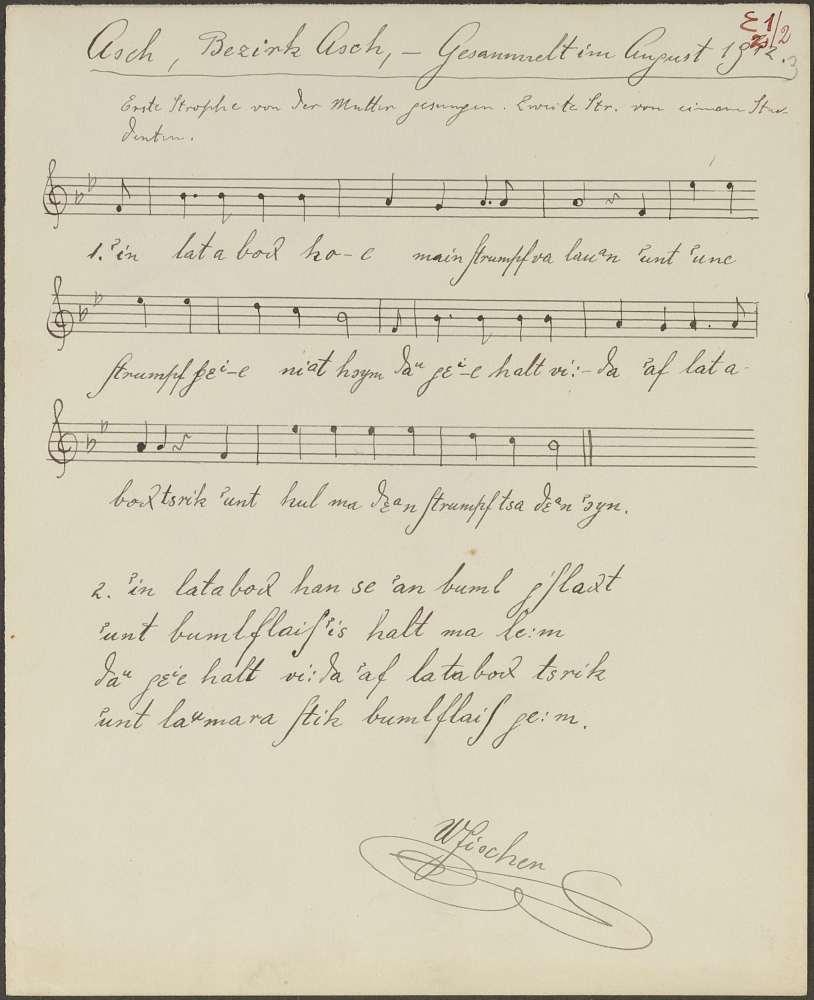 E 1/2
Asch, Bezirk Asch, – Gesammelt im August 1912.
3
Erste Strophe von der Mutter gesungen. Zweite Str. von einem Stu-
denten.
1. ʾin lataboχ ho-e main ʃtrumpf va lauᵃn ʾunt ʾune
ʃtrumpf gɛⁱ-e niat hɔym daᵘ gɛⁱ-e halt vi:-da ʾaf lata-
boχ tsrik ʾunt hul ma dɛᵃn ʃtrumpf tsa dɛᵃn ʾɔyn.
2. ʾin lataboχ han se ʾan buml gʾʃlaχt
ʾunt bumlflaiʃ ʾis halt ma le:m
daᵘ gɛⁱe halt vi:da ʾaf lataboχ tsrik
ʾunt laᵘ mara ʃtik bumlflaiʃ ge:m.
WFischer